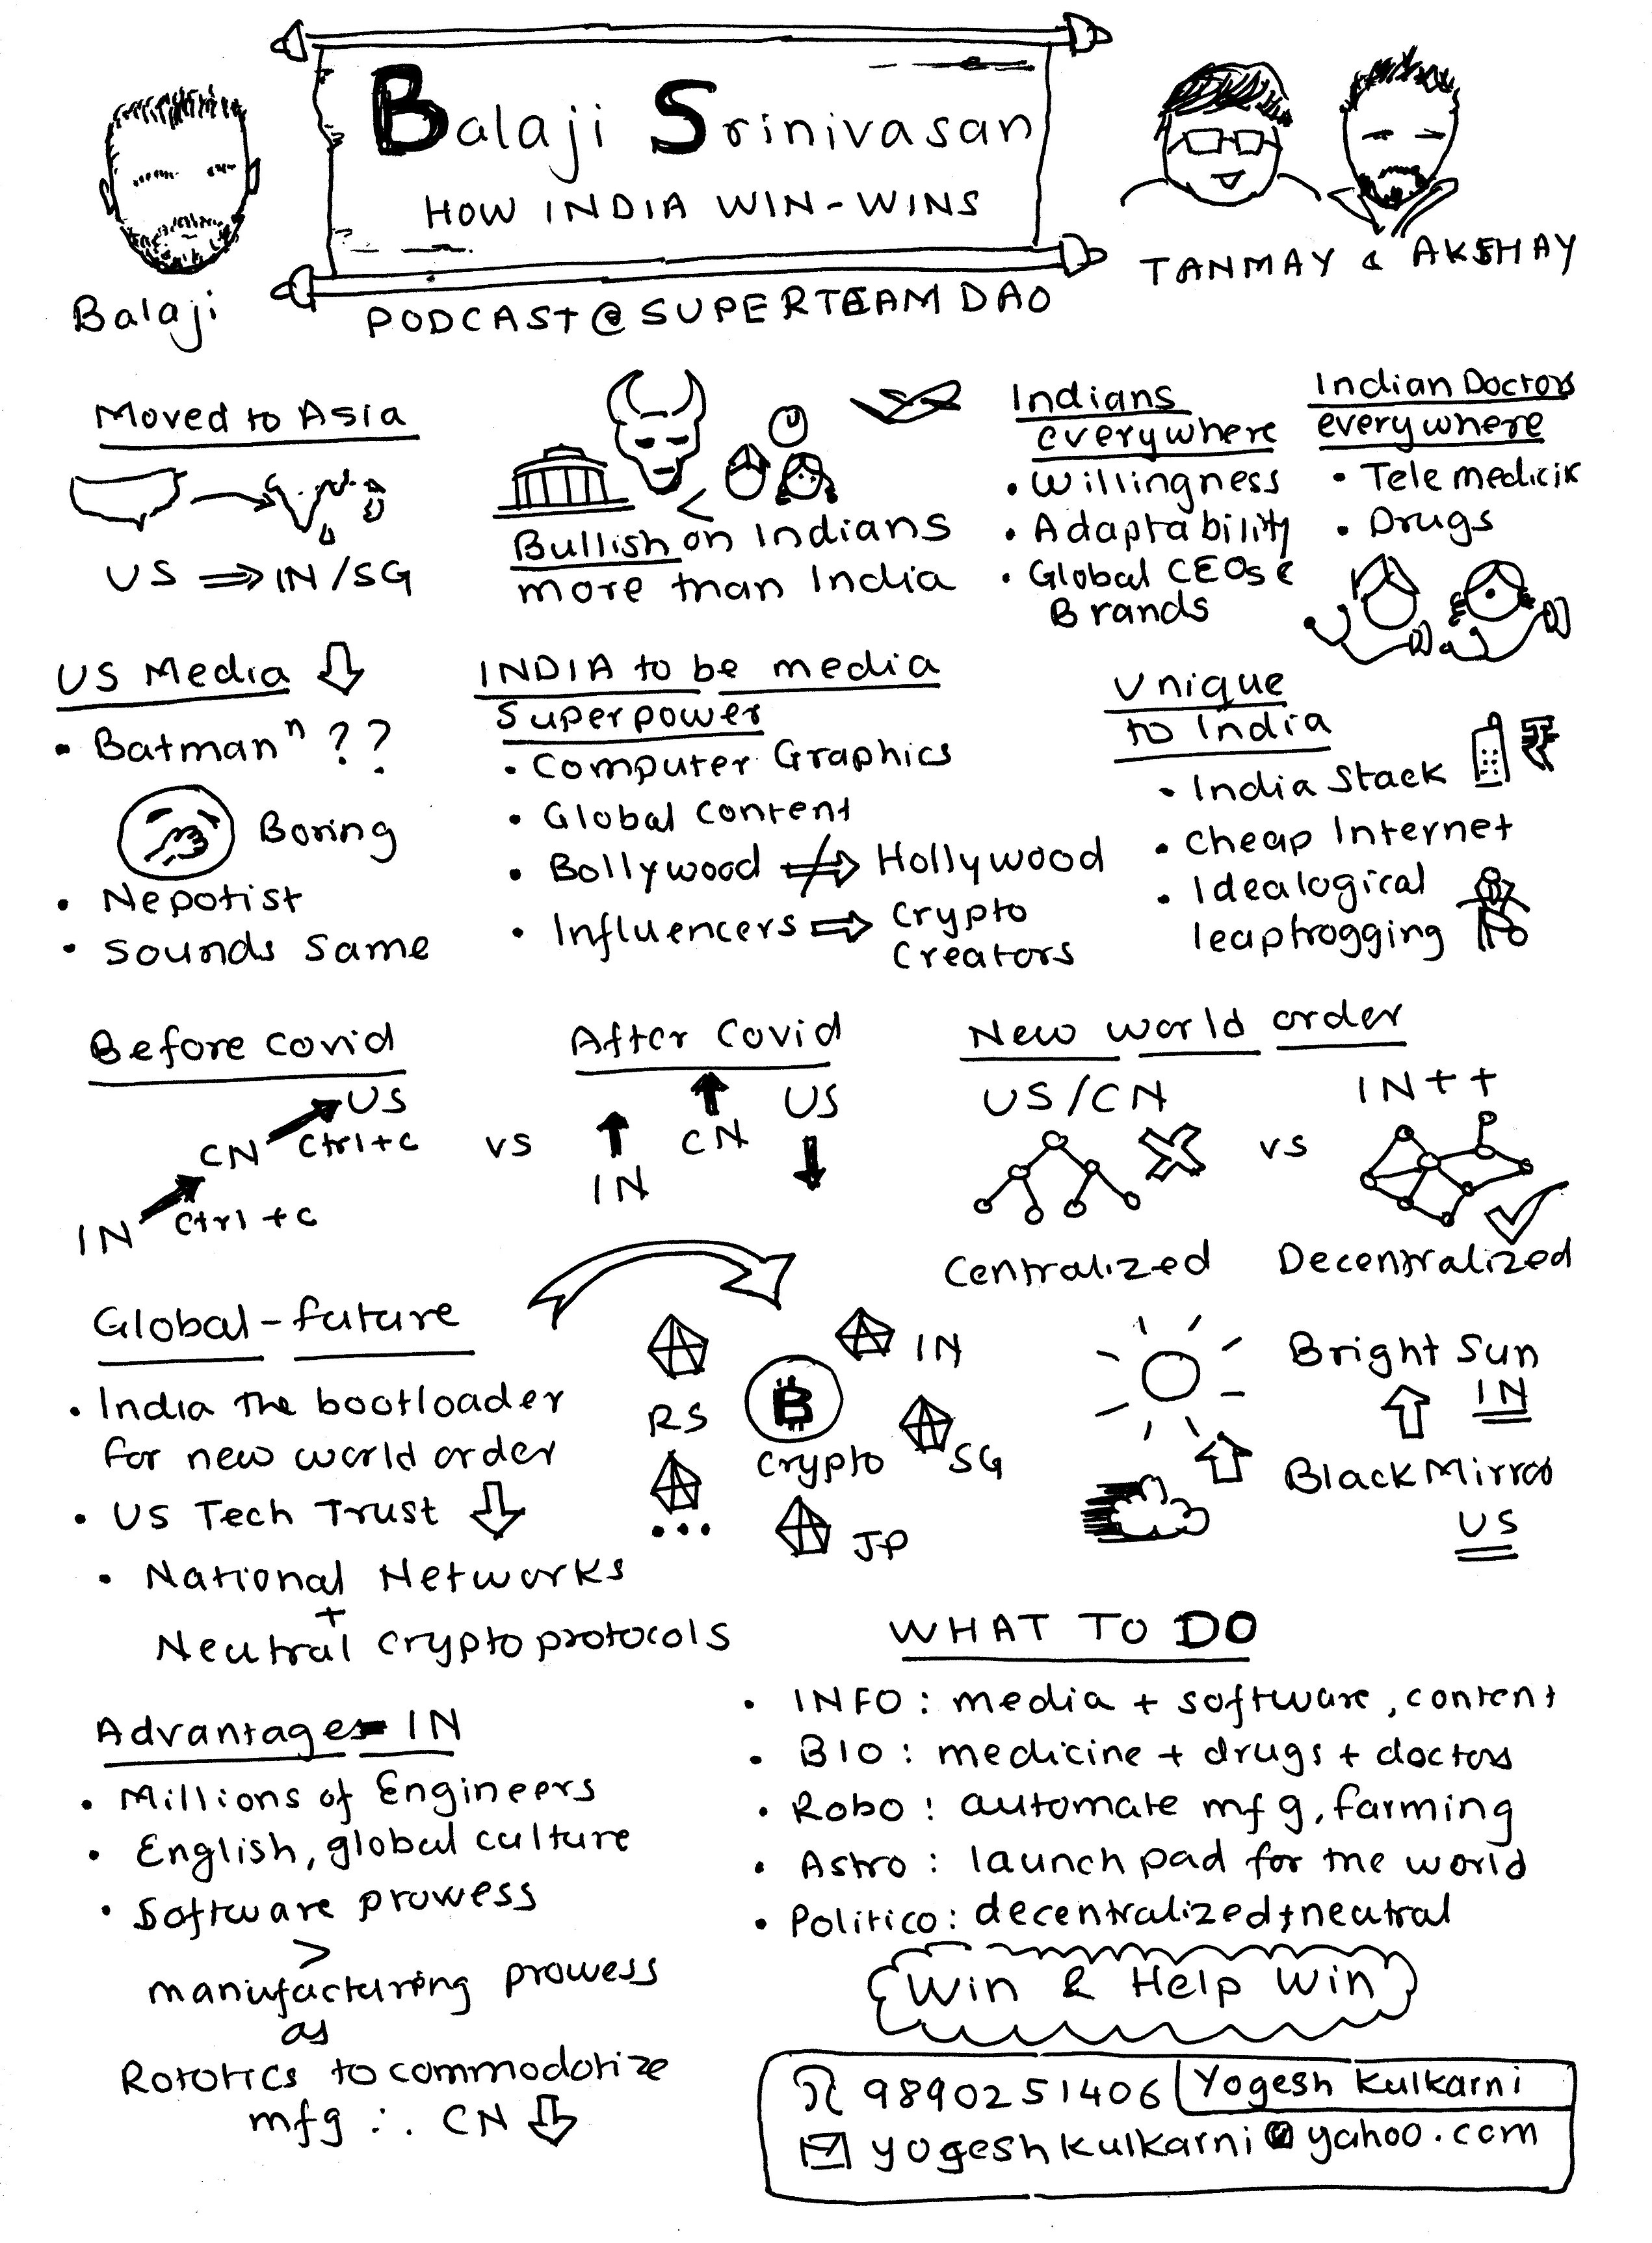 Balaji Srinivasan
HOW INDIA WIN-WINS
PODCAST@SUPERTEAM DAO
Balaji
TANMAY & AKSHAY
Moved to Asia
US ⇒ IN/SG
Bullish on Indians
more than India
Indians
everywhere
• Willingness
• Adaptability
• Global CEOs &
Brands
Indian Doctors
everywhere
• Tele medicin
• Drugs
US Media ⇩
• Batmanⁿ ??
Boring
• Nepotist
• Sounds Same
INDIA to be media
Superpower
• Computer Graphics
• Global Content
• Bollywood ⇏ Hollywood
• Influencers ⇒ Crypto
Creators
Unique
to India
• India Stack ₹
• Cheap Internet
• Idealogical
leapfrogging
Before Covid
US
CN Ctrl+C
IN Ctrl+C
vs
After Covid
IN CN US
New world order
US/CN vs IN++
Centralized Decentralized
Global-future
• India the bootloader
for new world order
• US Tech Trust ⇩
• National Networks
+
Neutral crypto protocols
IN
RS
₿
Crypto
SG
JP
...
Bright Sun
IN
Black Mirror
US
Advantages-IN
• Millions of Engineers
• English, global culture
• Software prowess
>
manufacturing prowess
as
Rototics to commodotize
mfg ∴ CN ⇩
WHAT TO DO
• INFO: media + software, content
• BIO: medicine + drugs + doctors
• Robo: automate mfg, farming
• Astro: launch pad for the world
• Politico: decentralized + neutral
Win & Help Win
9890251406 Yogesh Kulkarni
yogeshkulkarni@yahoo.com